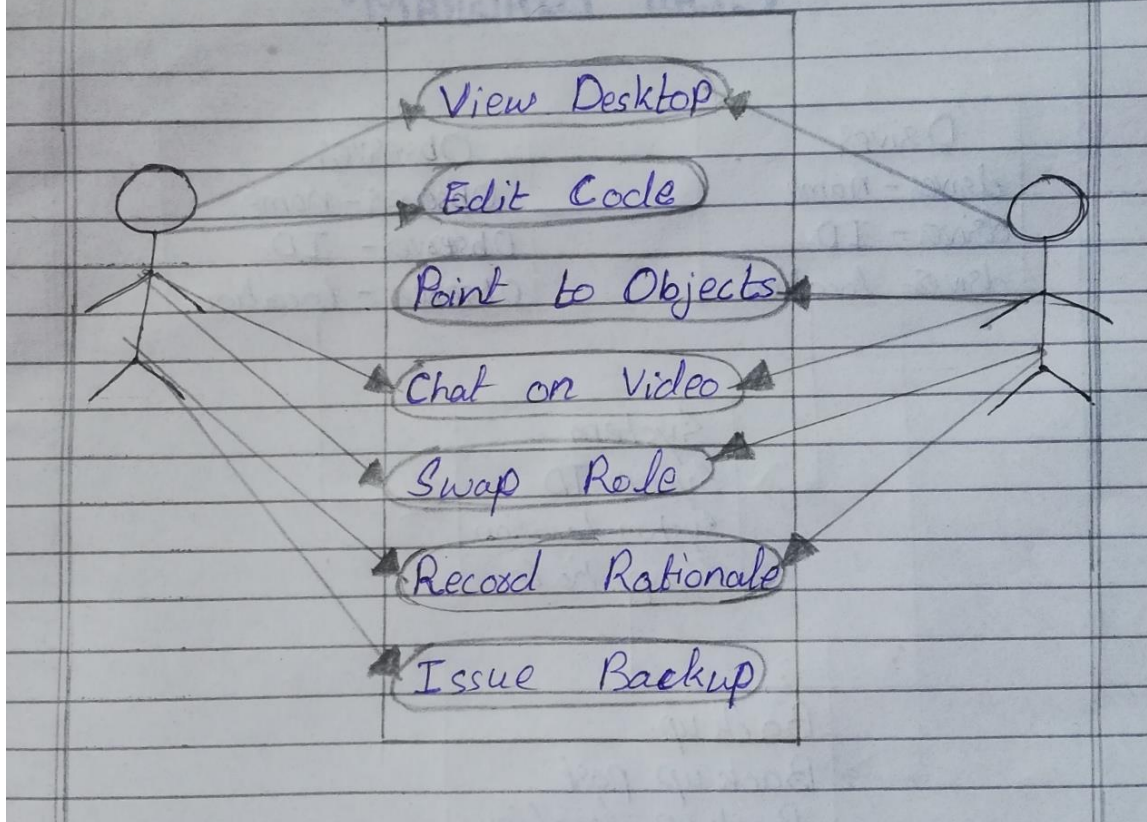 View Desktop
Edit Code
Point to Objects
Chat on Video
Swap Role
Record Rationale
Issue Backup